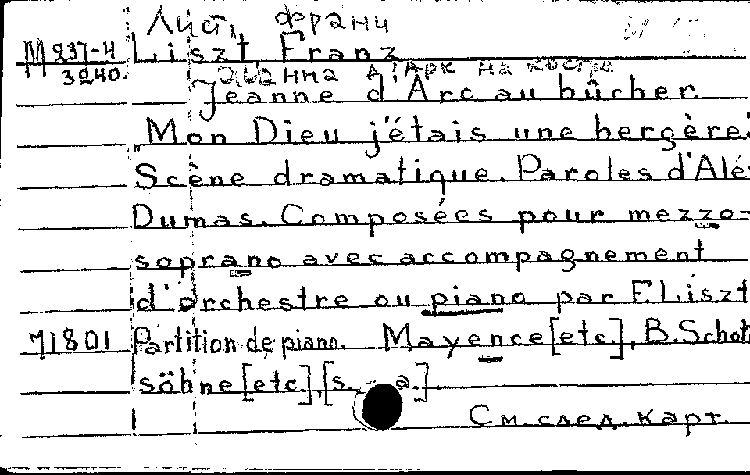 Лист, Франц
M 237-4 Liszt, Franz
3240. Жанна д'Арк на костре
Jeanne d'Arc au bûcher
Mon Dieu j'étais une bergère.
Scène dramatique. Paroles d'Alé
Dumas. Composées pour mezzo-
soprano avec accompagnement
d'orchestre ou piano par F. Liszt
71801 Partition de piano. Mayence [etc.], B. Schott
söhne [etc.], [s. a.].
См. след. карт.